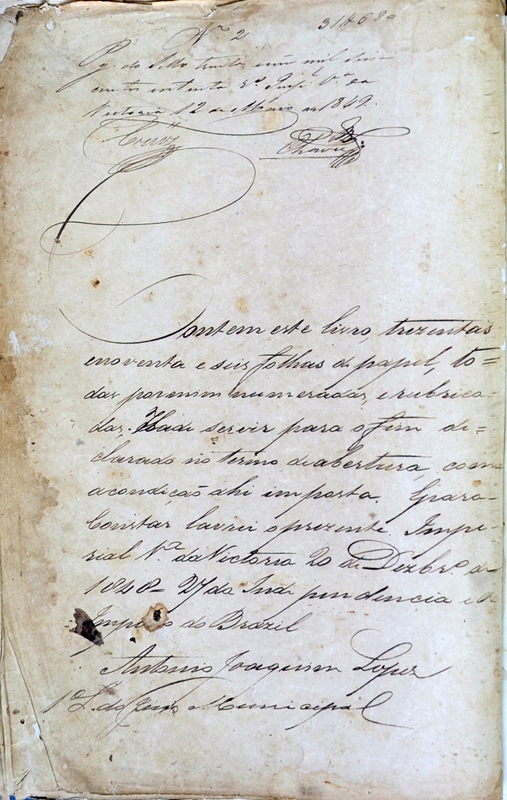 Nº 2 31$680
Pg. de Sello trinta e um mil seis
centos e oitenta rs. Imp. Va. da
Victoria 12 de Março de 1849.
Chaves
Contem este livro, trezentas
enoventa e seis folhas de papel, to=
das por mim numeradas, e rubrica-
das. Hade servir para o fim de=
clarado no termo de abertura, com
a condição ahi imposta. E para
Constar lavrei o prezente Impe-
rial Na. da Victoria 20 de Dezbro. de
1848 - 27 da Independencia e do
Imperio do Brazil
Antonio Joaquim Lopes
1º S. do Juis Municipal